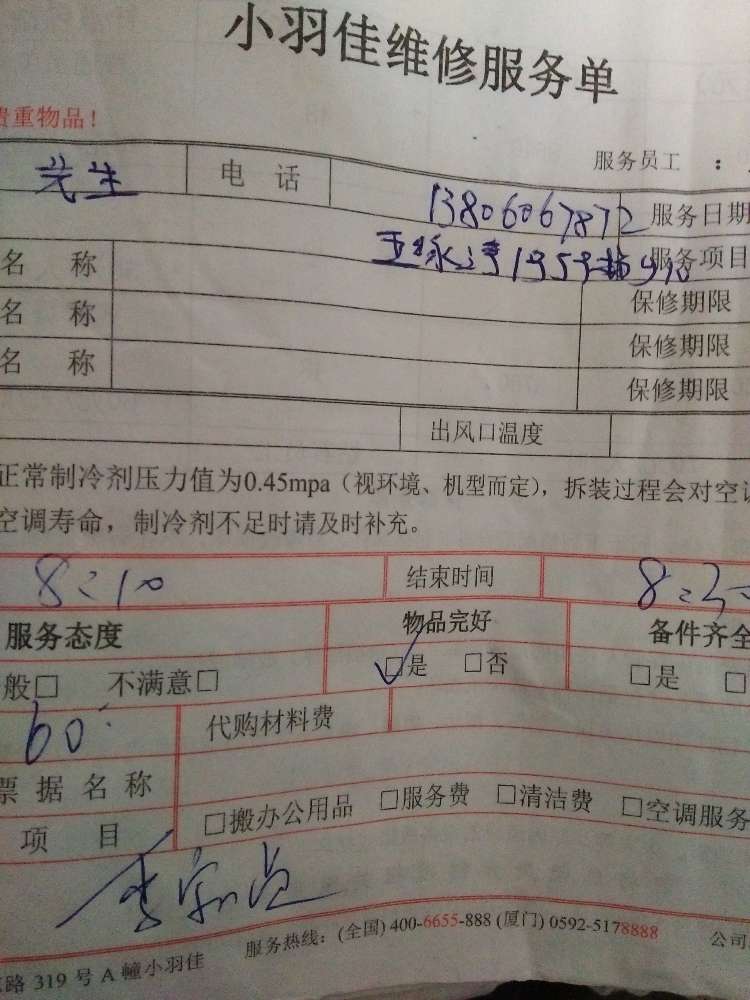 小羽佳维修服务单
贵重物品!
服务员工 :
先生 电话 13806067872 服务日期
名称 服务项目
名称 保修期限
名称 保修期限
保修期限
出风口温度
正常制冷剂压力值为0.45mpa(视环境、机型而定),拆装过程会对空调
空调寿命,制冷剂不足时请及时补充。
8:10 结束时间 8:30
服务态度 物品完好 备件齐全
般□ 不满意□ ☑是 □否 □是 □
60 代购材料费
票据名称
项目 □搬办公用品 □服务费 □清洁费 □空调服务
服务热线:(全国) 400-6655-888 (厦门) 0592-5178888 公司
路 319 号 A 幢小羽佳